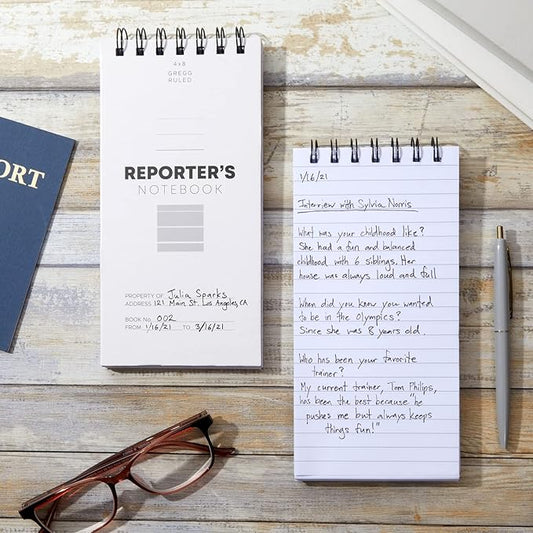 PORT
4x8
GREGG
RULED
REPORTER'S
NOTEBOOK
PROPERTY OF Julia Sparks
ADDRESS 121 Main St. Los Angeles, CA
BOOK No. 002
FROM 1/16/21 TO 3/16/21
1/16/21
Interview with Sylvia Norris
What was your childhood like?
She had a fun and balanced
childhood with 6 siblings. Her
house was always loud and full
When did you know you wanted
to be in the Olympics?
Since she was 8 years old.
Who has been your favorite
trainer?
My current trainer, Tom Philips,
has been the best because "he
pushes me but always keeps
things fun!"